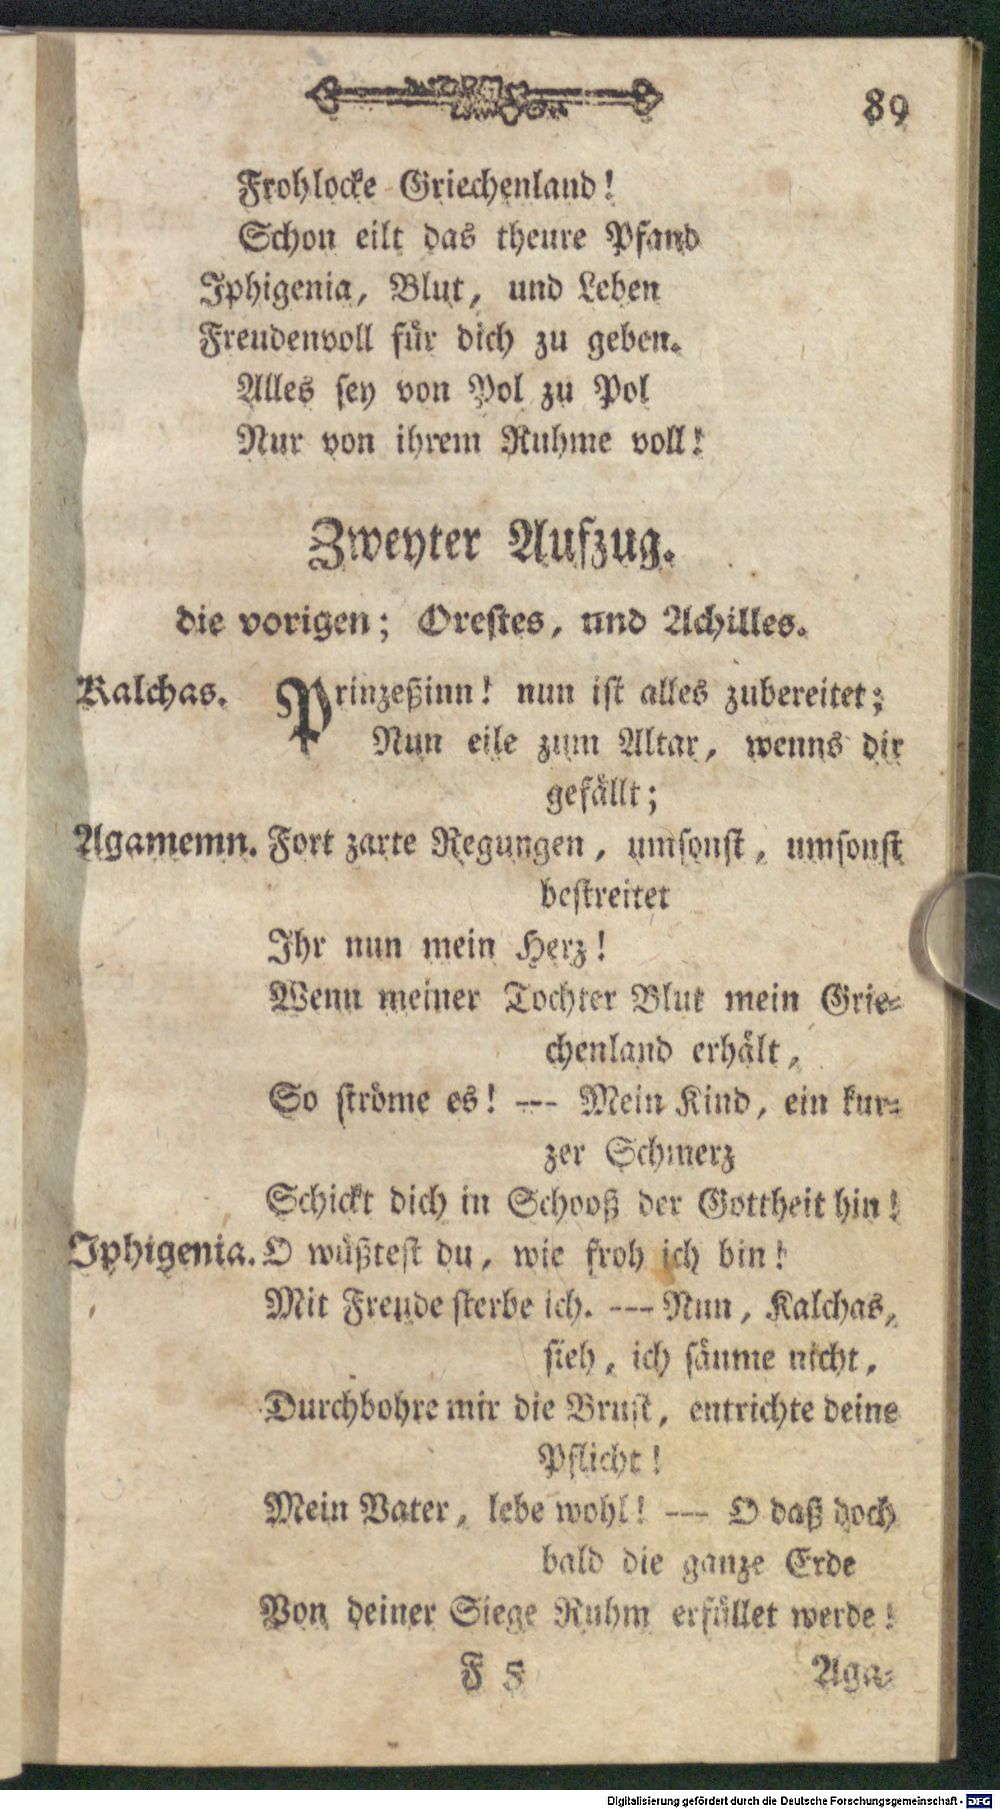 89
Frohlocke Griechenland!
Schon eilt das theure Pfand
Iphigenia, Blut, und Leben
Freudenvoll für dich zu geben.
Alles sey von Pol zu Pol
Nur von ihrem Ruhme voll!
Zweyter Aufzug.
die vorigen; Orestes, und Achilles.
Kalchas. Prinzeßinn! nun ist alles zubereitet;
Nun eile zum Altar, wenns dir
gefällt;
Agamemn. Fort zarte Regungen, umsonst, umsonst
bestreitet
Ihr nun mein Herz!
Wenn meiner Tochter Blut mein Grie-
chenland erhält,
So ströme es! --- Mein Kind, ein kur-
zer Schmerz
Schickt dich in Schooß der Gottheit hin!
Iphigenia. O wüßtest du, wie froh ich bin!
Mit Freude sterbe ich. --- Nun, Kalchas,
sieh, ich säume nicht,
Durchbohre mir die Brust, entrichte deine
Pflicht!
Mein Vater, lebe wohl! --- O daß doch
bald die ganze Erde
Von deiner Siege Ruhm erfüllet werde!
F 5 Aga-
Digitalisierung gefördert durch die Deutsche Forschungsgemeinschaft - DFG